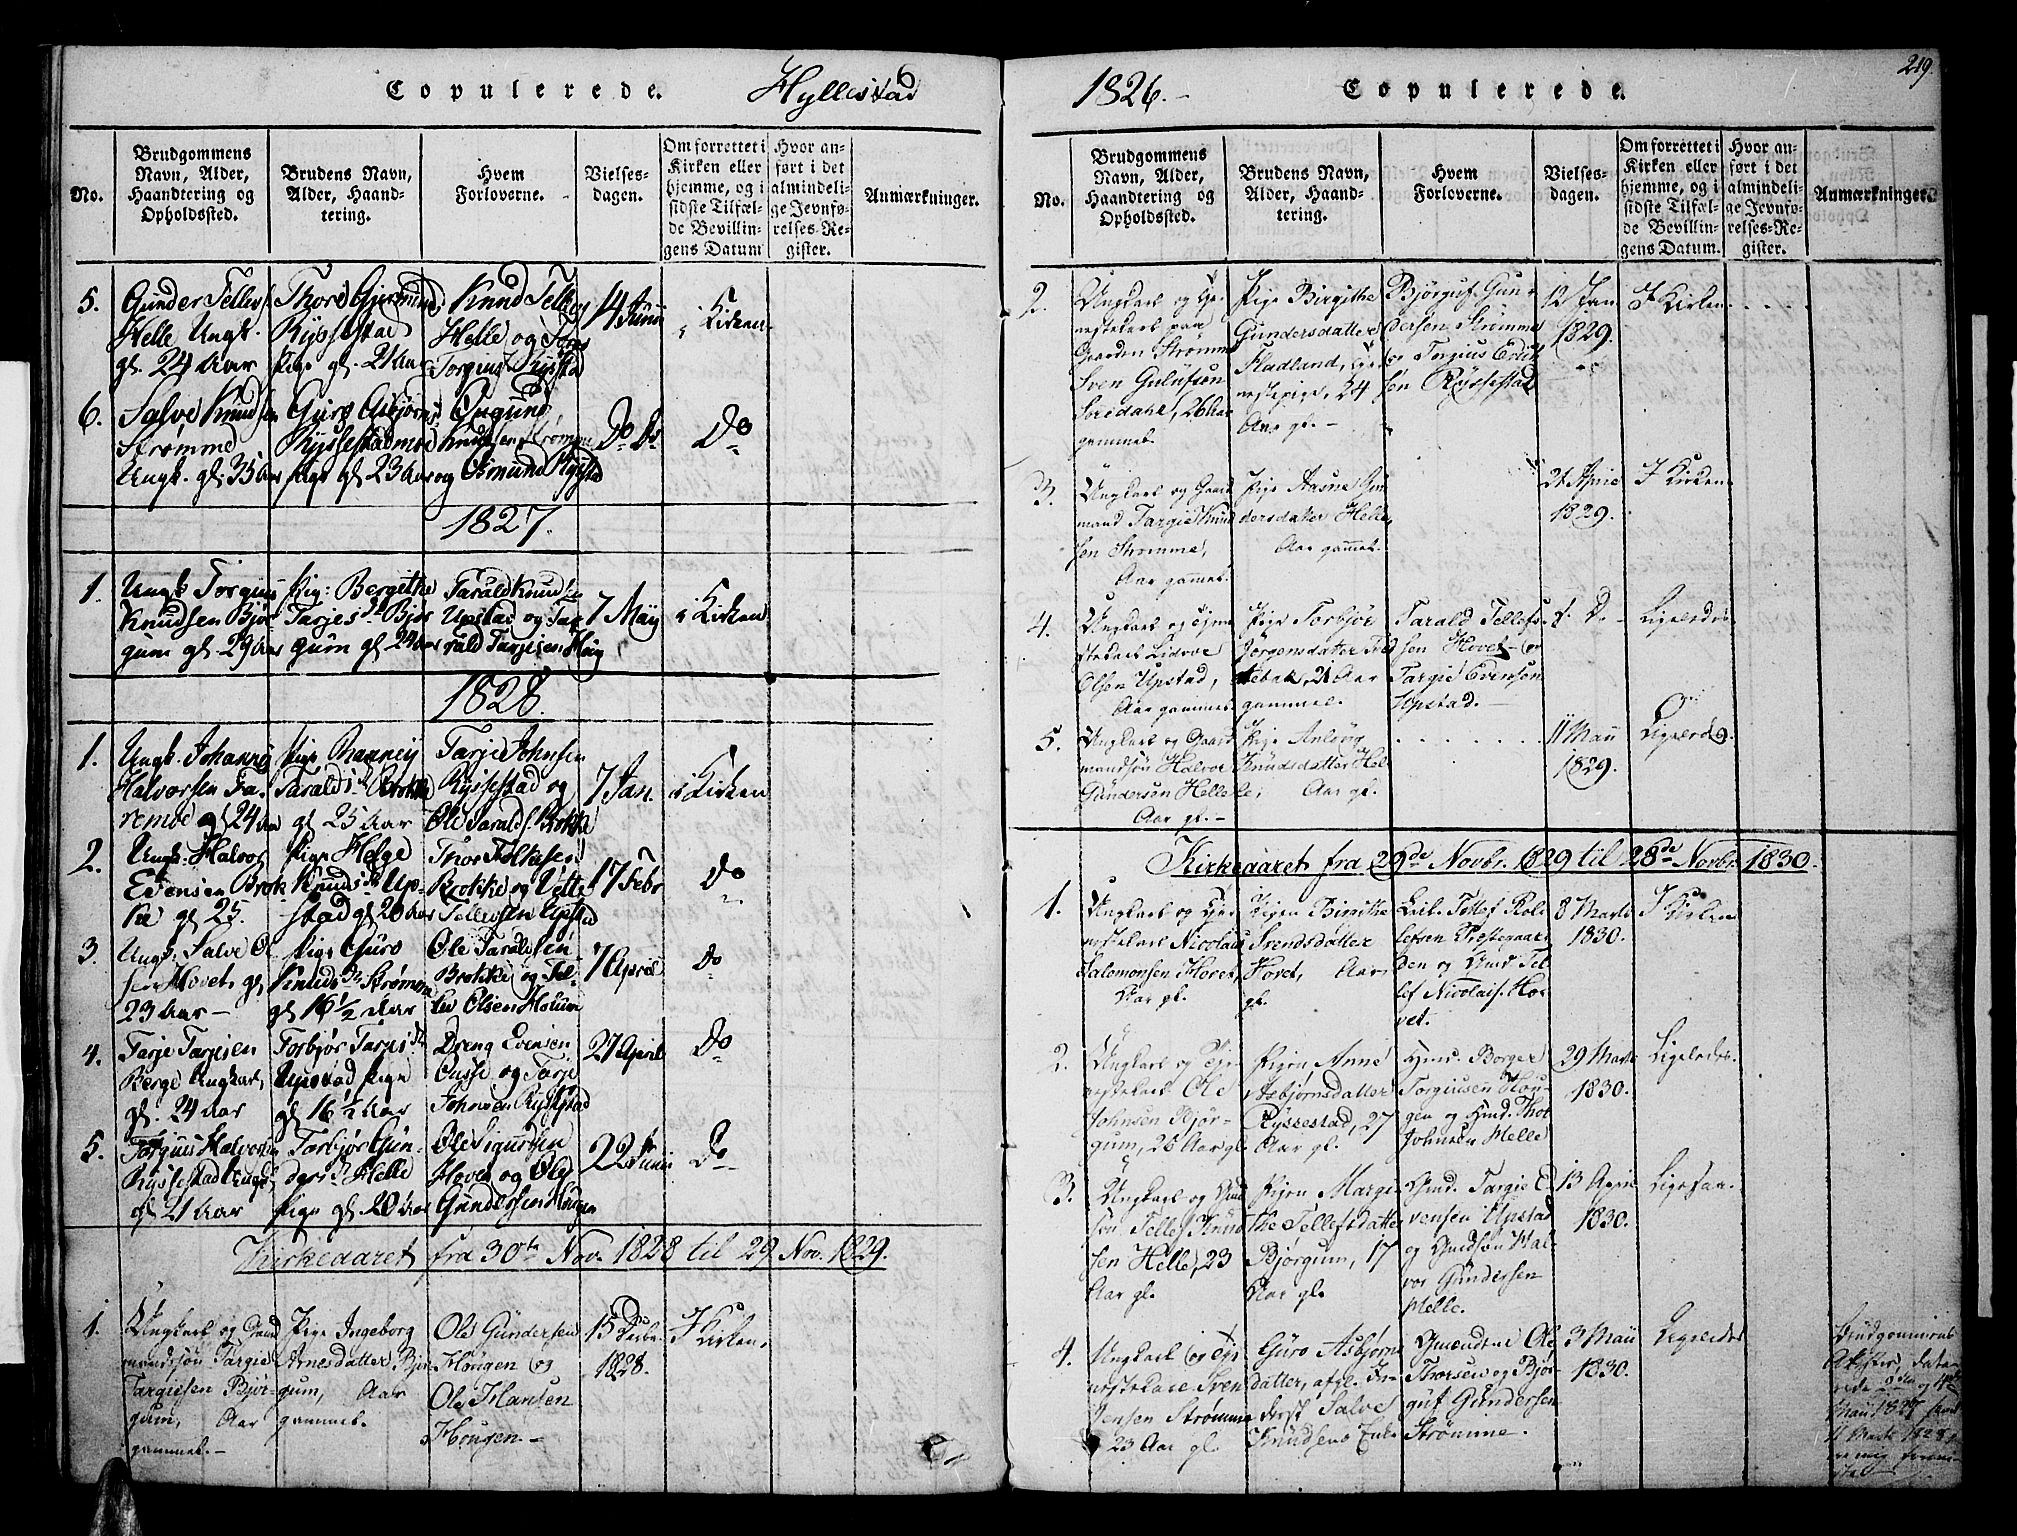 Copulerede. Hyllestad
No.
Brudgommens Navn, Alder, Haandtering og Opholdssted.
Brudens Navn, Alder, Haandtering.
Hvem Forloverne.
Vielsesdagen.
Om forrettet i Kirken eller hjemme, og i sidste Tilfælde Bevillingens Datum
Hvor anført i det almindelige Jevnførelses-Register.
Anmærkninger.
5.
Gunder Tellefs.
Helle Ungk.
gl. 24 Aar
Thore Gjermund
Ryssestad
Pige gl. 21 Aar
Knud Tellefs
Helle og
Torgius Rysstad
14 Junii
i Kirken
6.
Salve Knudsen
Strømme
Ungk. gl. 35 Aar
Guro Asbjørns
Ryssestadmoe
Pige gl. 23 Aar
Ougund
Knudsen Strømme
og Osmund Rysstad
Do Do
Do
1827.
1.
Ungk Torgius
Knudsen Bjør
gum gl. 29 Aar
Pig: Bergithe
Tarjes Dr Bjør
gum gl. 24 Aar
Tarald Knudsen
Upstad og Ta
rald Tarjesen Houg
7 Maij
i Kirken
1828.
1.
Ungk. Johannes
Halvorsen Fa-
remoe gl. 24 Aar
Pige Ranneij
Taralds Dr Brokke
gl. 25 Aar
Tarje Johnsen
Ryssestad og
Ole Taralds. Brokke
7 Jan.
i Kirken
2.
Ungk. Halvor
Evensen Brok
ke gl. 25.
Pige Helge
Knuds Dr Up-
stad gl. 20 Aar
Thor Folkesen
Brokke og Vette
Tellevsen Upstad
17 Febr
Do
3.
Ungk. Salve O
sen Hovet gl.
23 Aar -
Pige Guro
Knuds Dr Strømme
gl. 16 1/2 Aar
Ole Taraldsen
Brokke og Tel-
lev Olsen Hoium
7 April
Do
4.
Tarje Tarjesen
Berge Ungkarl,
gl. 24 Aar
Torbjør Tarjes Dr
Upstad Pige
gl. 16 1/2 Aar
Dreng Evensen
Ousse og Tarje
Johnsen Rystad
27 April
Do
5.
Torgius Halvorsen
Ryssestad Ungk.
gl. 21 Aar
Torbjør Gun-
ders Dr Helle
Pige gl. 20 Aar
Ole Sigurdsen
Hovet og Ole
Gundersen Hougen
22 Junii
Do
Kirkeaaret fra 30te Nov. 1828 til 29 Nov. 1829.
1.
Ungkarl og Gaard
mandsøn Targie
Targiesen Bjør-
gum, Aar
gammel. -
Pige Ingeborg
Arnesdatter Bjør
gum, Aar
gammel.
Ole Gundersen
Hougen og
Ole Hansen
Hougen. -
15 Decbr.
1828.
I Kirken.
1826. - Copulerede. 219.
No.
Brudgommens Navn, Alder, Haandtering og Opholdssted.
Brudens Navn, Alder, Haandtering.
Hvem Forloverne.
Vielsesdagen.
Om forrettet i Kirken eller hjemme, og i sidste Tilfælde Bevillingens Datum.
Hvor anført i det almindelige Jevnførelses-Register.
Anmærkninger.
2.
Ungkarl og Tje-
nestekarl paa
Gaarden Strømme
Sven Gulufson
26 Aar
gammel.
Pige Birgithe
Gundersdatter
Fladland, tje-
nestepige, 24
Aar gl. -
Bjørguf Gun-
dersen Strømme
og Torgius Erik
sen Ryssestad
12 Jan
1829.
I Kirken
3.
Ungkarl og Gaard
mand Targie Knud
sen Strømme,
Aar gammel.
Pige Aasne Gun
dersdatter Helle,
Aar gammel.
21 April
1829.
I Kirken
4.
Ungkarl og Tjene
stekarl Lidvor
Olsen Upstad,
Aar gammel.
Pige Torbjør
Jørgensdatter
21 Aar
gammel.
Tarald Tellefs
sen Hovet og
Targie Evensen
Upstad. -
Do -
Ligeledes
5.
Ungkarl og Gaard
mandsøn Halvor
Gundersen Helle
Aar gl. -
Pige Anlaug
Knudsdatter Hel
le, Aar gl.
11 Maii
1829.
Ligeledes.
Kirkeaaret fra 29de Novbr. 1829 til 28de Novbr. 1830.
1.
Ungkarl og Tje-
nestekarl Nicolaus
Salomonsen Hovet,
Aar gl.
Pigen Birgithe
Svendsdatter
Hovet, Aar
gl.
Tellef Rol
lefsen Prestegaar
den og Gmd Tel
lef Nicolais. Ho-
vet.
8 Marts
1830.
I Kirken
2.
Ungkarl og Tje-
nestekarl Ole
Johnsen Bjør-
gum, 26 Aar gl
Pigen Anne
Asbjørnsdatter
Ryssestad, 27
Aar gl.
Borger
Torgiusen Hou-
gen og Gmd. Thor
Johnsen Helle
29 Marts
1830.
Ligeledes.
3.
Ungkarl og Gmd
søn Tellef Knud
sen Helle, 23
Aar gl.
Pigen Margi-
the Tellefsdatter
Bjørgum, 17
Aar gl.
Gmd. Targie E-
vensen Upstad
og Gmdsøn Hal-
vor Gundersen
Helle.
13 April
1830.
Ligesaa.
4.
Ungkarl og Tje
nestekarl Sven
Jensen Strømme
23 Aar gl.
Guro Asbjørns
datter, afgl. In-
derst Salve
Knudsens Enke
Gmændene Ole
Thorsen og Bjør
guf Gundersen
Strømme.
3 Maii
1830.
Ligeledes
Brudgommens
og 4de
Maii 1827
Marts 1828